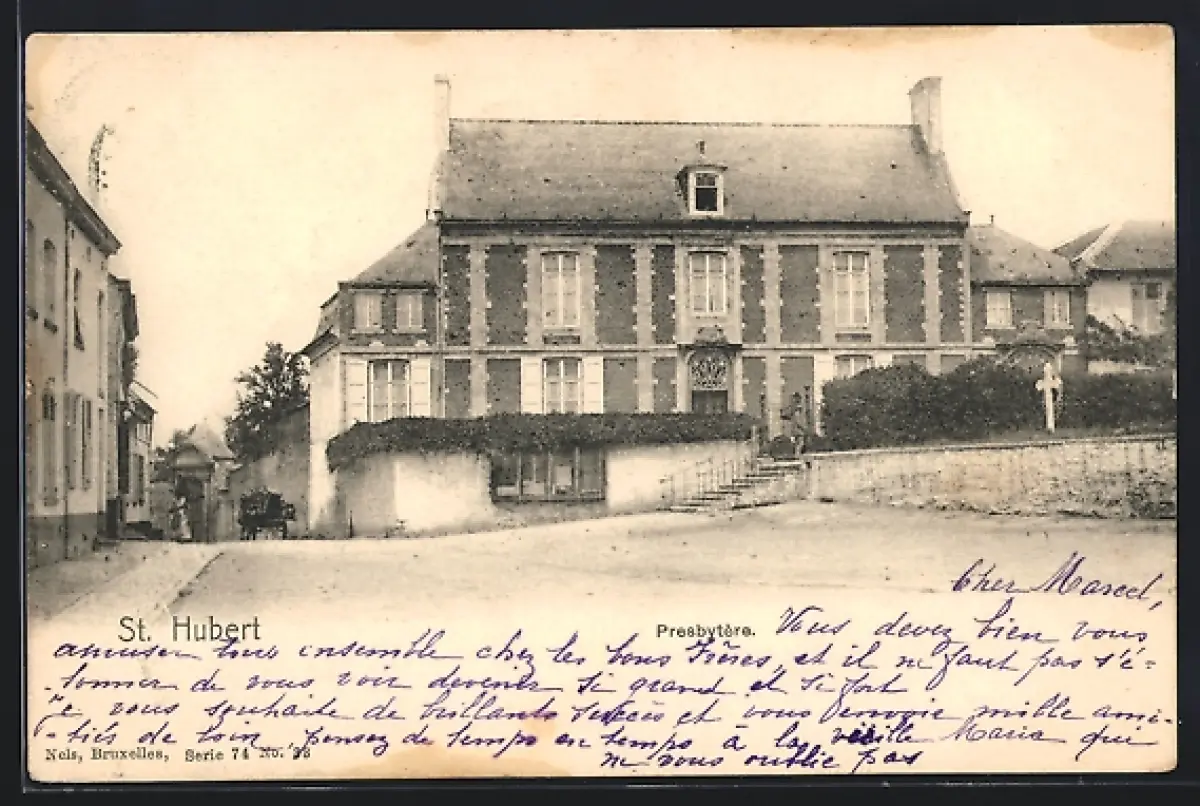 Cher Marcel,
St. Hubert
Presbytère.
Vous devez bien vous
amuser tous ensemble chez les bons Frères, et il ne faut pas s'é-
-tonner de vous voir devenir si grand et si fort
Je vous souhaite de brillants succès et vous envoie mille ami-
-tiés de loin. Pensez de temps en temps à la vieille Maria qui
ne vous oublie pas
Nels, Bruxelles, Serie 74 No.